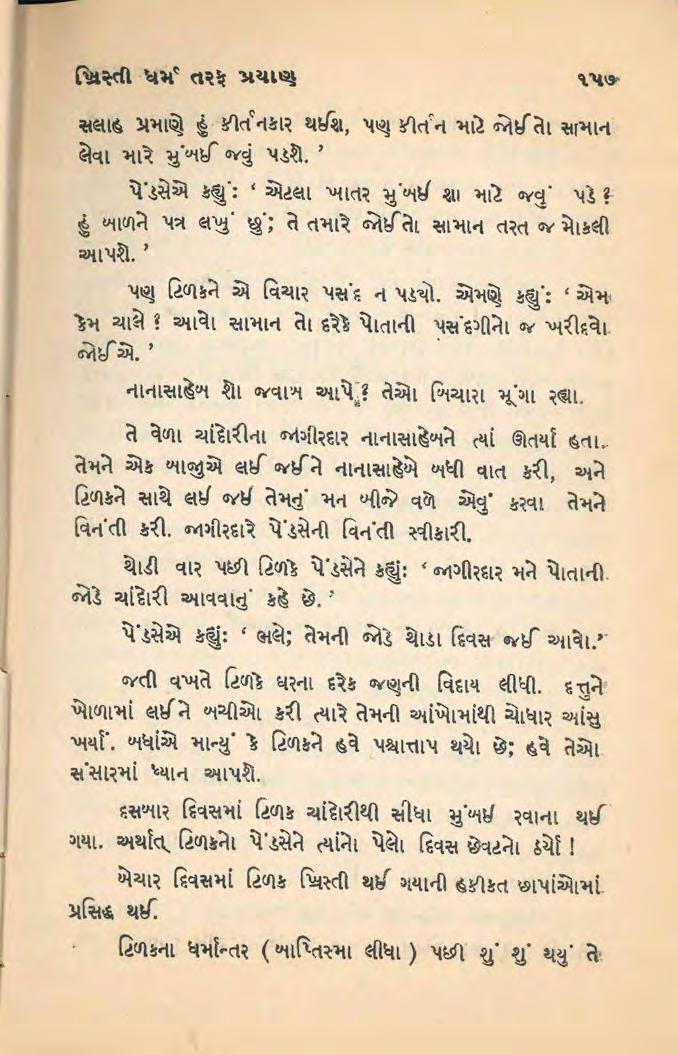 ખ્રિસ્તી ધર્મ તરફ પ્રયાણ ૧૫૭
સલાહ પ્રમાણે હું કીર્તનકાર થઈશ, પણ કીર્તન માટે જોઈતો સામાન
લેવા મારે મુંબઈ જવું પડશે. ’
પેંડસેએ કહ્યું: ‘ એટલા ખાતર મુંબઈ શા માટે જવું પડે ?
હું બાળને પત્ર લખું છું; તે તમારે જોઈતો સામાન તરત જ મોકલી
આપશે. ’
પણ ટિળકને એ વિચાર પસંદ ન પડયો. એમણે કહ્યું: ‘ એમ
કેમ ચાલે ? આવો સામાન તો દરેકે પોતાની પસંદગીનો જ ખરીદવો
જોઈએ. ’
નાનાસાહેબ શો જવાબ આપે ? તેઓ બિચારા મૂંગા રહ્યા.
તે વેળા ચાંદોરીના જાગીરદાર નાનાસાહેબને ત્યાં ઊતર્યા હતા.
તેમને એક બાજુએ લઈ જઈને નાનાસાહેબે બધી વાત કરી, અને
ટિળકને સાથે લઈ જઈ તેમનું મન બીજે વળે એવું કરવા તેમને
વિનંતી કરી. જાગીરદારે પેંડસેની વિનંતી સ્વીકારી.
થોડી વાર પછી ટિળકે પેંડસેને કહ્યું: ‘ જાગીરદાર મને પોતાની
જોડે ચાંદોરી આવવાનું કહે છે. ’
પેંડસેએ કહ્યું: ‘ ભલે; તેમની જોડે થોડા દિવસ જઈ આવો.’
જતી વખતે ટિળકે ઘરના દરેક જણની વિદાય લીધી. દત્તુને
ખોળામાં લઈને બચીઓ કરી ત્યારે તેમની આંખોમાંથી ચોધાર આંસુ
ખર્યાં. બધાંએ માન્યું કે ટિળકને હવે પશ્ચાત્તાપ થયો છે; હવે તેઓ
સંસારમાં ધ્યાન આપશે.
દસબાર દિવસમાં ટિળક ચાંદોરીથી સીધા મુંબઈ રવાના થઈ
ગયા. અર્થાત્ ટિળકનો પેંડસેને ત્યાંનો પેલો દિવસ છેવટનો ઠર્યો !
બેચાર દિવસમાં ટિળક ખ્રિસ્તી થઈ ગયાની હકીકત છાપાંઓમાં
પ્રસિદ્ધ થઈ.
ટિળકના ધર્માન્તર ( બાપ્તિસ્મા લીધા ) પછી શું શું થયું તે